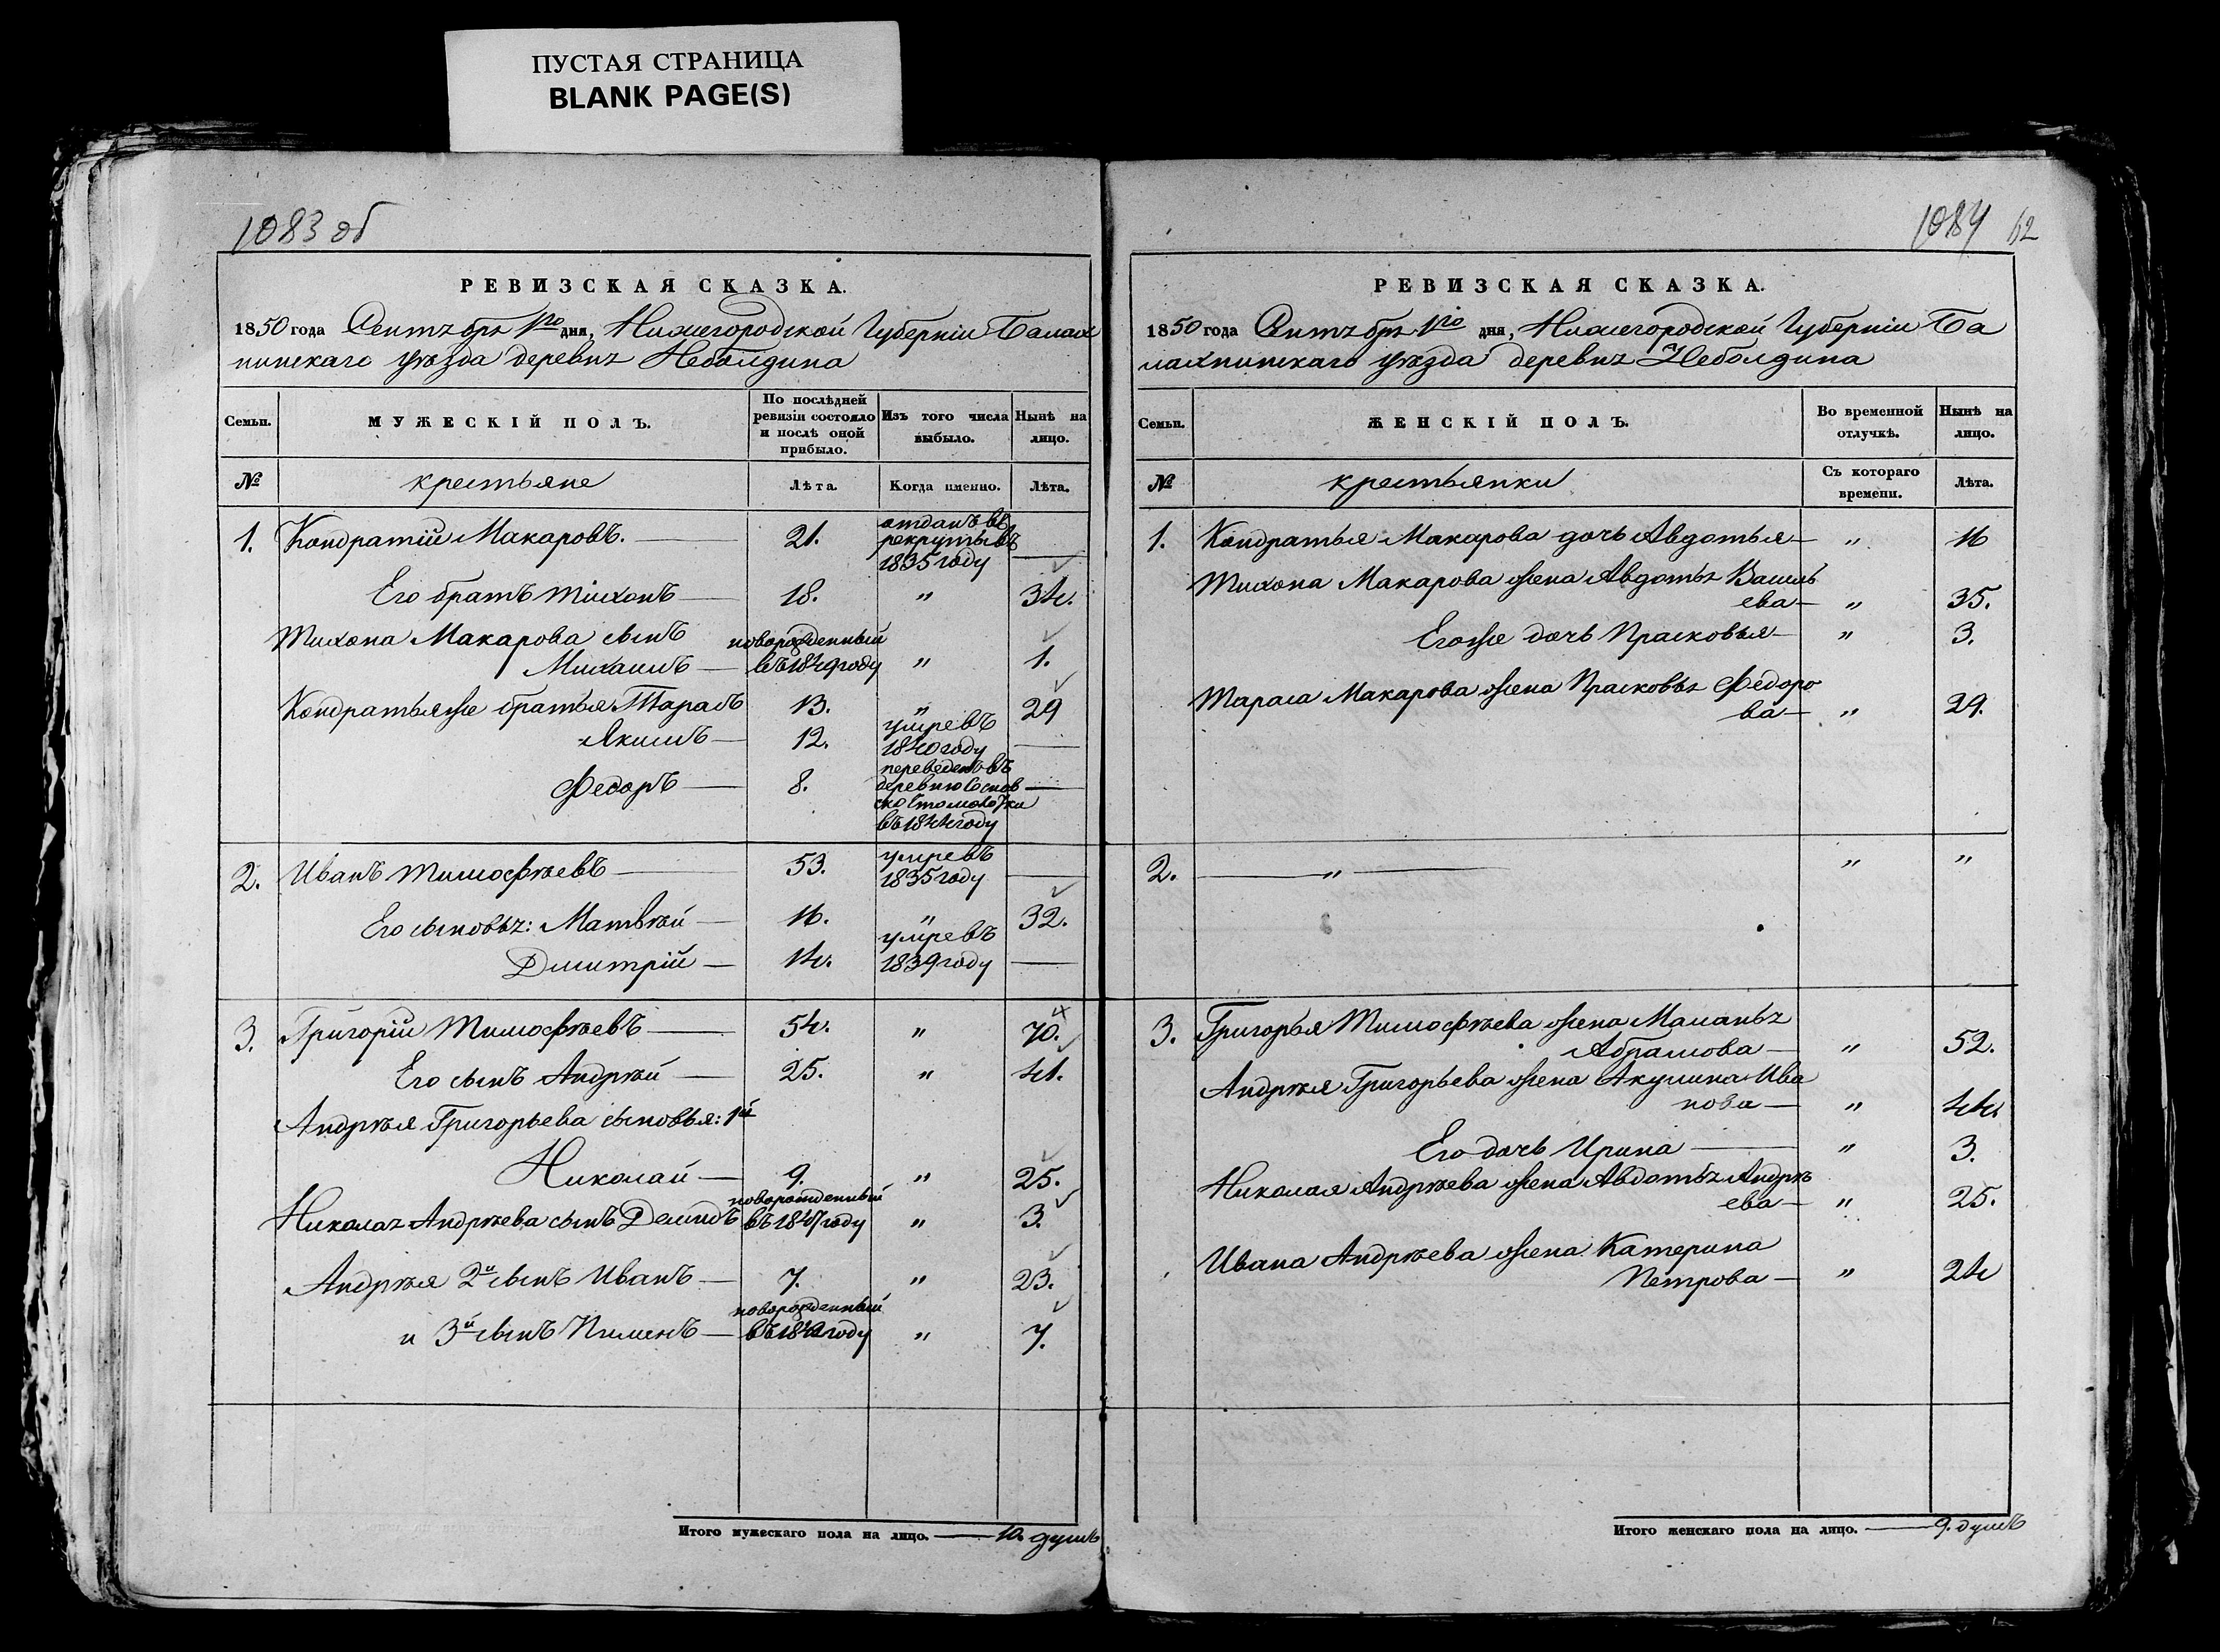 ПУСТАЯ СТРАНИЦА
BLANK PAGE(S)
1083 об
РЕВИЗСКАЯ СКАЗКА.
1850 года Сентября 1го дня, Нижегородской Губерніи Балах
нинскаго уѣзда деревня Неболдина
Семьи. МУЖЕСКІЙ ПОЛЪ. По послѣдней ревизіи состояло и послѣ оной прибыло. Изъ того числа выбыло. Нынѣ на лицо.
№ крестьяне Лѣта. Когда именно. Лѣта.
1. Кондратій Макаровъ. — 21. отданъ въ рекруты въ 1835 году —
Его братъ Тихонъ — 18. " 34.
Тихона Макарова сынъ
Михаилъ — новорожденный въ 1849 году " 1.
Кондратья же братья Тарасъ 13. " 29
Якимъ — 12. умре въ 1840 году —
Федоръ — 8. переведенъ въ деревню въ 1844 году —
2. Иванъ Тимофѣевъ — 53. умре въ 1835 году —
Его сыновья: Матвѣй — 16. " 32.
Дмитрій — 14. умре въ 1839 году —
3. Григорій Тимофѣевъ — 54. " 70.
Его сынъ Андрѣй — 25. " 41.
Андрѣя Григорьева сыновья: 1й
Николай — 9. " 25.
Николая Андрѣева сынъ Демидъ новорожденный въ 1847 году " 3.
Андрѣя 2й сынъ Иванъ — 7. " 23.
и 3й сынъ Пименъ — новорожденный въ году " 7.
Итого мужескаго пола на лицо. — 10. душъ
1084 62
РЕВИЗСКАЯ СКАЗКА.
1850 года Сентября 1го дня, Нижегородской Губерніи Ба
лахнинскаго уѣзда деревня Неболдина
Семьи. ЖЕНСКІЙ ПОЛЪ. Во временной отлучкѣ. Нынѣ на лицо.
№ крестьянки Съ котораго времени. Лѣта.
1. Кондратья Макарова дочь Авдотья — " 16
Тихона Макарова жена Авдотья Василь
ева — " 35.
Его же дочь Прасковья — " 3.
Тараса Макарова жена Прасковья Федоро
ва — " 29.
2. — " — " "
3. Григорья Тимофѣева жена Маланья
Абрамова — " 52.
Андрѣя Григорьева жена Акулина Ива
нова — " 44.
Его дочь Ирина — " 3.
Николая Андрѣева жена Авдотья Андрѣ
ева — " 25.
Ивана Андрѣева жена Катерина
Петрова — " 24
Итого женскаго пола на лицо. — 9. душъ